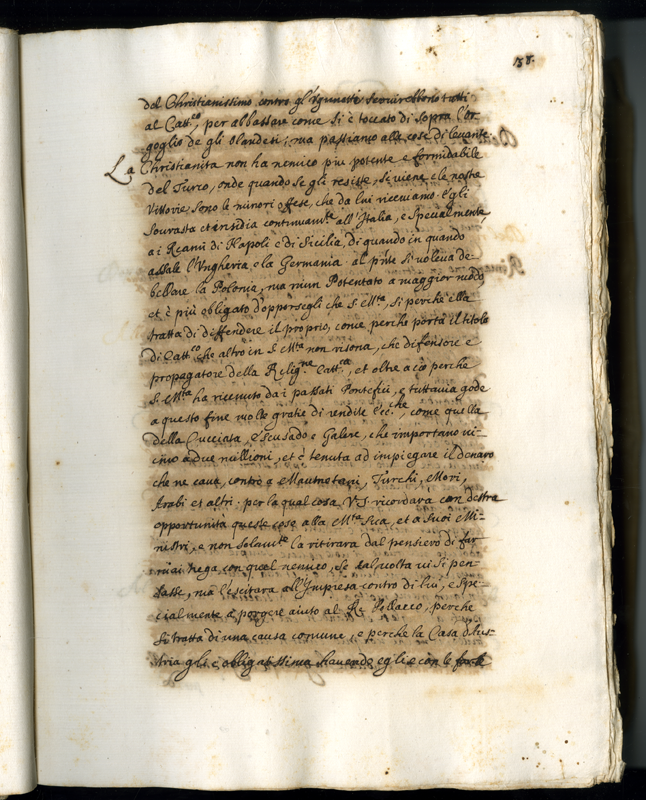 158.
del Christianissimo contro gl'Ugunotti servirebbono tutti
al Catt.co, per abbassare come si è toccato di sopra l'or-
goglio de gli Olandesi; ma passiamo alle cose di levante
La Christianità non ha nemico piu potente e formidabile
del Turco, onde quando se gli resiste, si viene e le nostre
Vittorie sono le minori offese, che da lui riceviamo. egli
sourasta et insidia continuam.te all'Italia, e specialmente
a i Reami di Napoli e di Sicilia, di quando in quando
assale l'Ungheria, e la Germania. al p̃nte si voleva de-
bellare la Polonia, ma niun Potentato a maggior modo
et è più obligato d'opporsegli che S. M.ta, si perche ella
tratta di diffendere il proprio, come perche porta il titolo
di Catt.co che altro in S. M.ta non risona, che difensore e
propagatore della Relig.ne Catt.ca, et oltre a ciò perche
S. M.ta ha ricevuto da i passati Pontefici, e tuttavia gode
a questo fine molte gratie di rendite Ecc.che, come quella
della Cucciata, Escusado e Galere, che importano vi-
cino a due millioni, et è tenuta ad impiegare il denaro
che ne cava, contro a Maumetani, Turchi, Mori,
Arabi et altri. per la qual cosa V.S. ricordarà con destra
opportunità queste cose alla M.ta Sua, et a suoi Mi-
nistri, e non solam.te la ritirarà dal pensiero di far
mai trega con quel nemico, se tal volta vi si pen-
sasse, ma l'escitarà all'Impresa contro di lui, e spe-
cialmente a porgere aiuto al Re Pollacco, perche
si tratta di una causa comune, e perche la Casa d'Aus-
tria gli è obligatissima havendo egli e con le forze